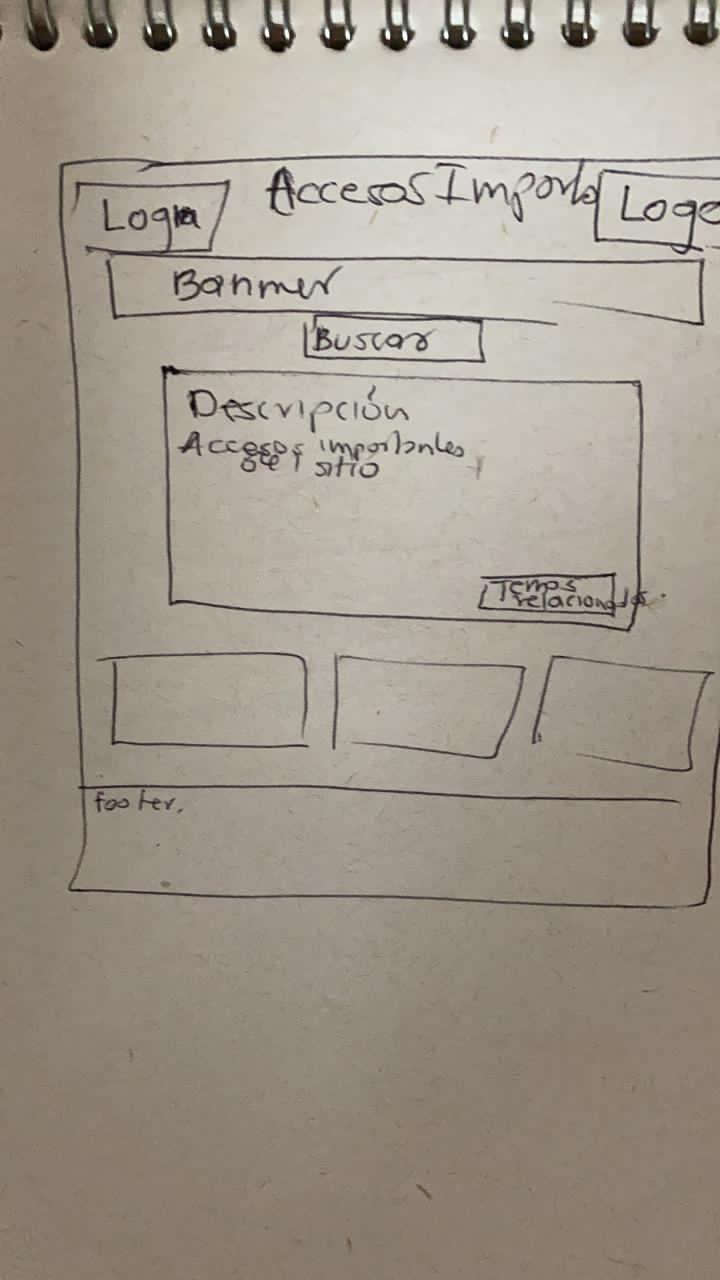 Accesos Importa
Logo
Banmer
Buscar
Descripción
Accesos importantes
del sitio
Temas
relacionados.
footer.